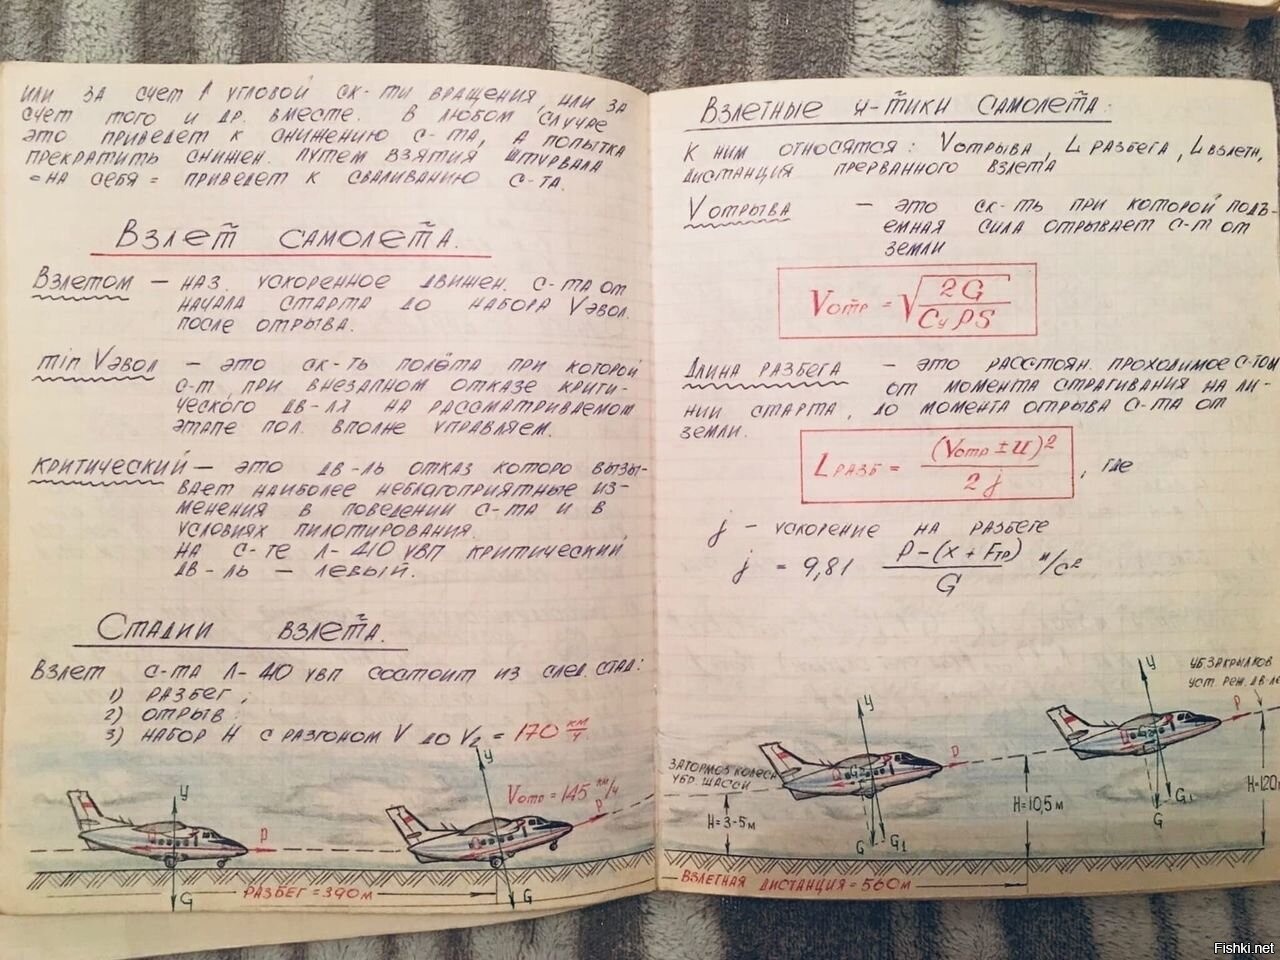 или за счет ↑ угловой ск-ти вращения, или за
счет того и др. вместе. В любом случае
это приведет к снижению с-та, а попытка
прекратить снижен. путем взятия штурвала
=на себя= приведет к сваливанию с-та.
Взлет самолета.
Взлетом — наз. ускоренное движен. с-та от
начала старта до набора Vэвол.
после отрыва.
min Vэвол — это ск-ть полёта при которой
с-т при внезапном отказе крити-
ческого дв-ля на рассматриваемом
этапе пол. вполне управляем.
критический — это дв-ль отказ которо вызы-
вает наиболее неблагоприятные из-
менения в поведении с-та и в
условиях пилотирования.
На с-те Л-410 увп критический
дв-ль — левый.
Стадии взлета.
Взлет с-та Л-410 увп состоит из след. стад:
1) разбег;
2) отрыв.
3) набор H с разгоном V до V₂ = 170 км/ч
у
Vотр = 145 км/ч
у
P
P
G
G
разбег = 390 м
Взлетные х-тики самолета.
К ним относятся: Vотрыва, L разбега, L взлетн,
дистанция прерванного взлета
V отрыва — это ск-ть при которой подъ-
емная сила отрывает с-т от
земли
Vотр = √(2G / Cy ρS)
Длина разбега — это расстоян. проходимое с-том
от момента страгивания на ли-
нии старта, до момента отрыва с-та от
земли.
Lразб = (Vотр ± U)² / 2j, где
j — ускорение на разбеге
j = 9,81 P-(x+Fтр) / G м/с²
у
уб. закрылков
уст. реж. дв-ле
P
у
затормоз колеса
убр. шасси
P
H=3-5м
H=10,5м
H=120м
G G₁
G G₁
взлетная дистанция = 560м
Fishki.net